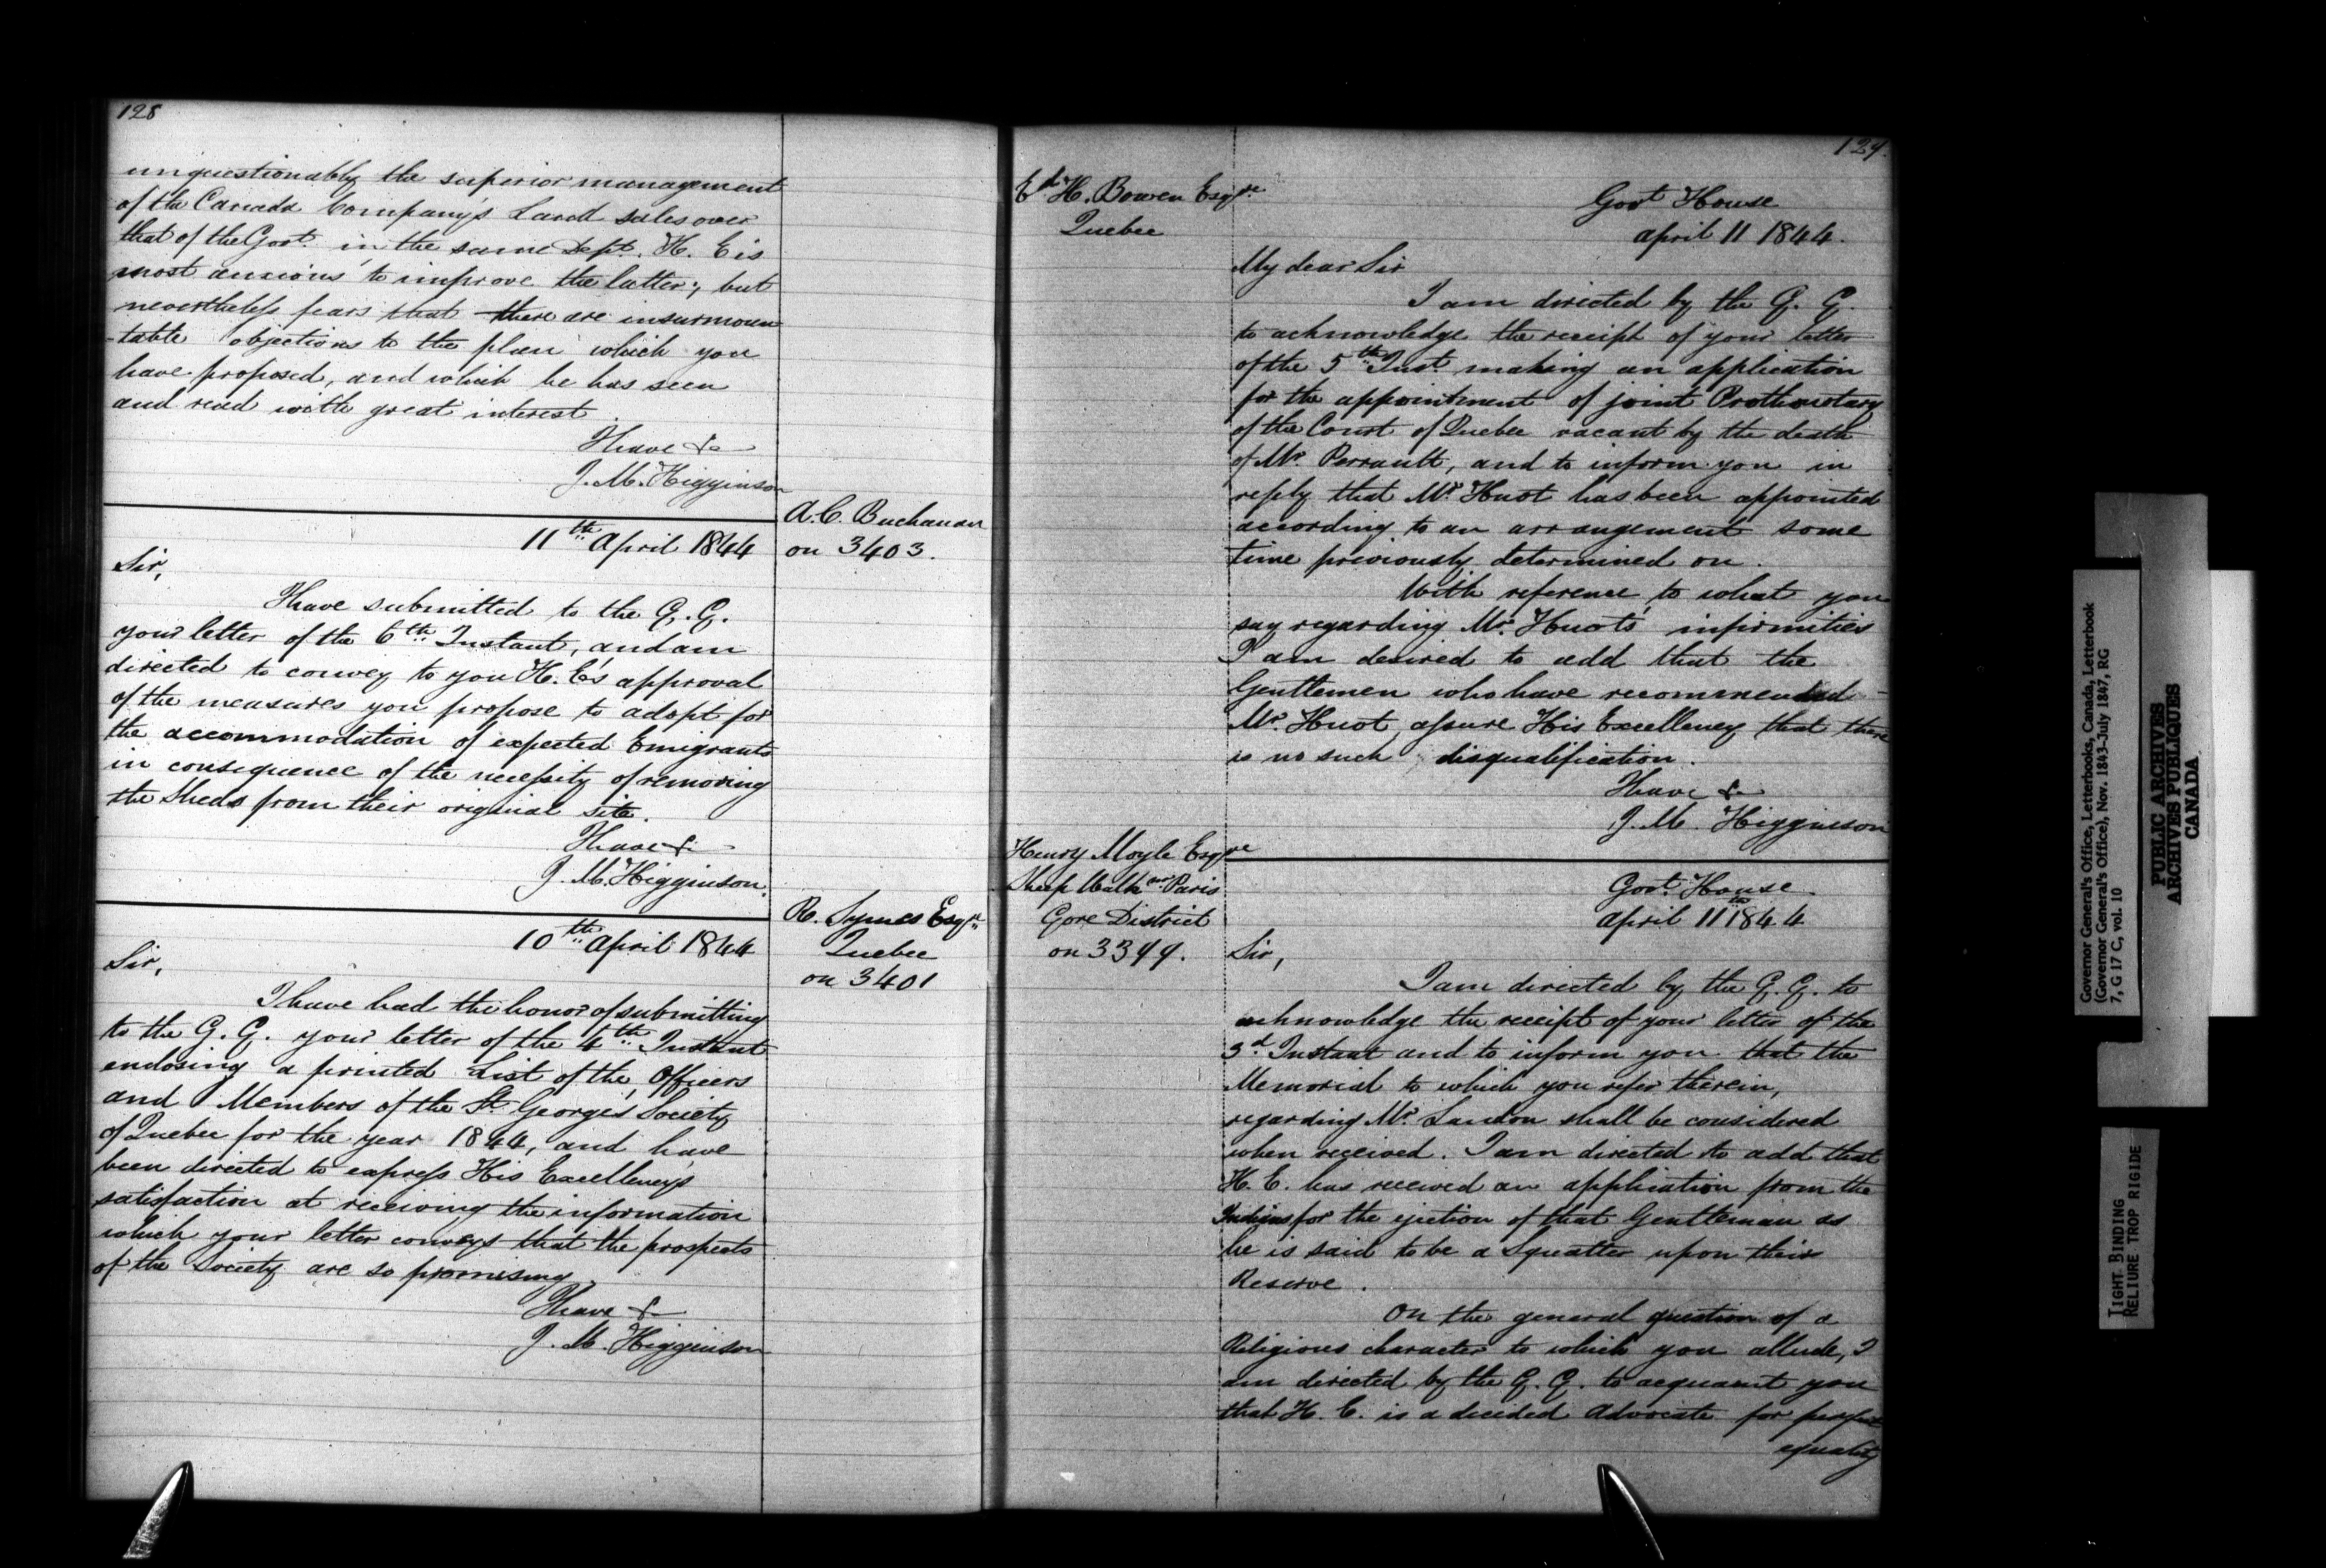 128
unquestionably the superior management
of the Canada Company's Land sales over
that of the Govt. in the same Dept. H. E is
most anxious to improve the latter; but
nevertheless fears that there are insurmoun
-table objections to the plan which you
have proposed, and which he has seen
and read with great interest.
I have &c
J. M. Higginson
A. C. Buchanan
on 3403.
11th April 1844
Sir,
I have submitted to the G. G.
your letter of the 6th Instant, and am
directed to convey to you H. E's approval
of the measures you propose to adopt for
the accommodation of expected Emigrants
in consequence of the necessity of removing
the Sheds from their original site.
I have &c
J. M. Higginson.
R. Symes Esqre
Quebec
on 3401
10th April 1844
Sir,
I have had the honor of submitting
to the G. G. your letter of the 4th Instant
enclosing a printed List of the Officers
and Members of the St Georges' Society
of Quebec for the year 1844, and have
been directed to express His Excellency's
satisfaction at receiving the information
which your letter conveys that the prospects
of the Society are so promising.
I have &
J. M. Higginson
129.
Ed H. Bowen Esqre
Quebec
Govt House
april 11 1844.
My dear Sir
I am directed by the G. G.
to acknowledge the receipt of your letter
of the 5th Inst. making an application
for the appointment of joint Prothonotary
of the Court of Quebec vacant by the death
of Mr. Perrault, and to inform you in
reply that Mr Huot has been appointed
according to an arrangement some
time previously determined on.
With reference to what you
say regarding Mr. Huot's infirmities
I am desired to add that the
Gentlemen who have recommended
Mr. Huot, assure His Excellency that there
is no such disqualification.
I have &c
J. M. Higginson
Henry Moyle Esqre
Sheep Walk nr Paris
Gore District
on 3399.
Govt. House.
April 11th 1844
Sir,
I am directed by the G. G. to
acknowledge the receipt of your letter of the
3d Instant and to inform you that the
Memorial to which you refer therein,
regarding Mr. Landon shall be considered
when received. I am directed to add that
H. E. has received an application from the
Indians for the ejection of that Gentleman as
he is said to be a Squatter upon their
Reserve.
On the general question of a
Religious character to which you allude, I
am directed by the G. G. to acquaint you
that H. E. is a decided Advocate for perfect
equality
Governor General's Office, Letterbooks, Canada, Letterbook
(Governor General's Office), Nov. 1843-July 1847, RG
7, G 17 C, vol. 10
PUBLIC ARCHIVES
ARCHIVES PUBLIQUES
CANADA
TIGHT BINDING
RELIURE TROP RIGIDE